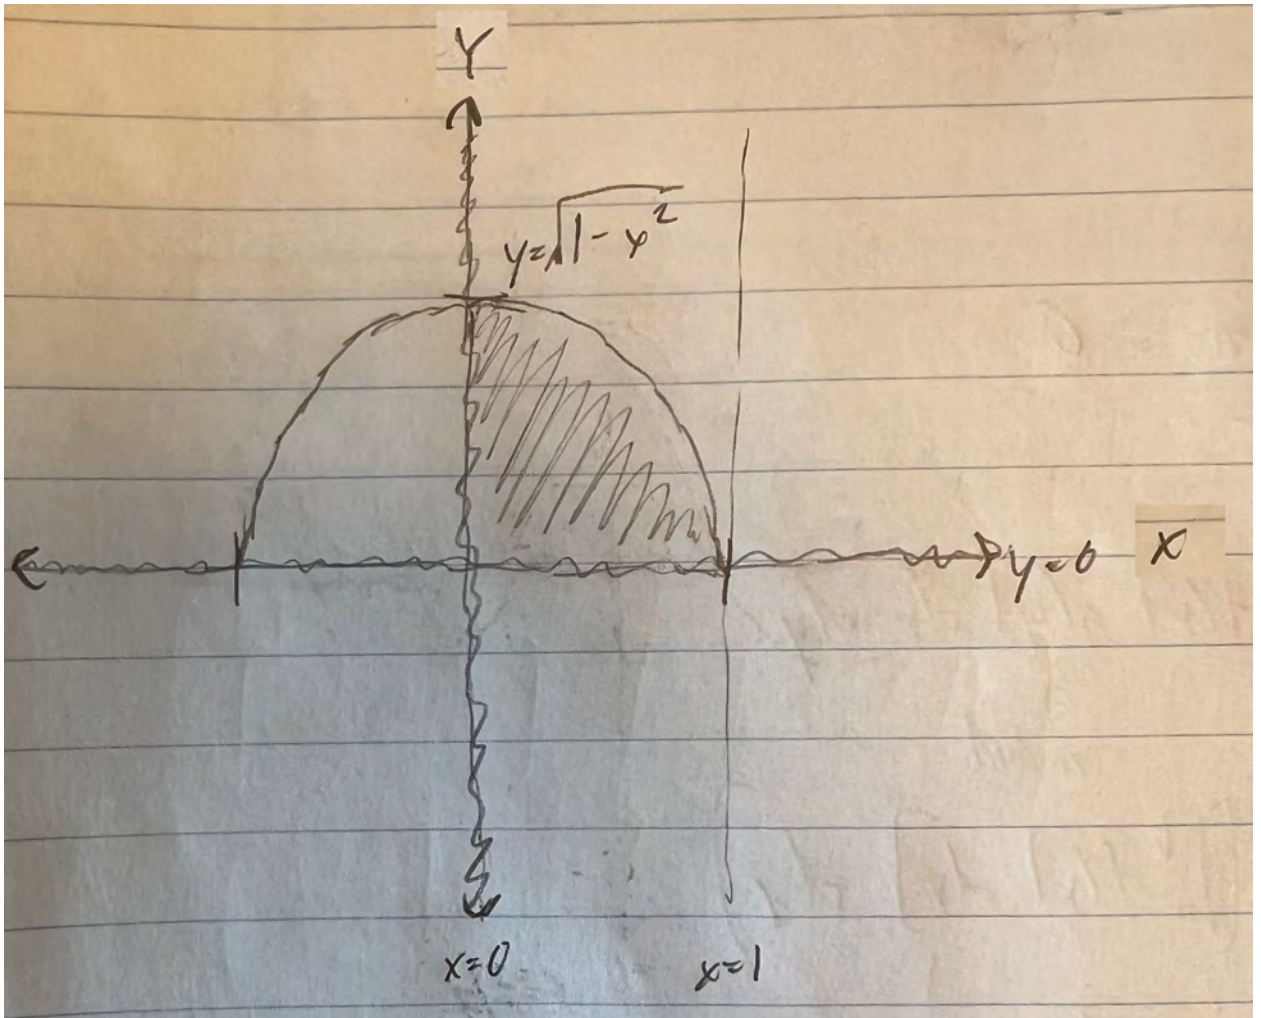 Y
y=√1-x²
y=0
X
x=0
x=1